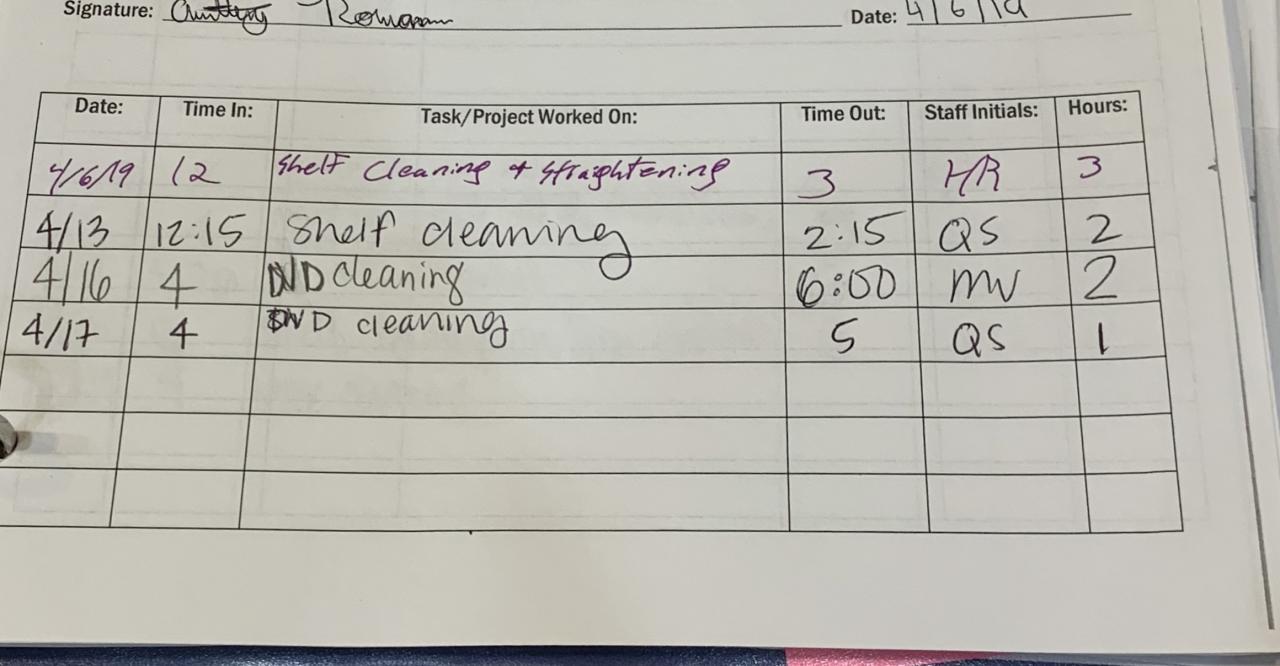 Signature: Date: 4/6/19
Date: Time In: Task/Project Worked On: Time Out: Staff Initials: Hours:
4/6/19 12 Shelf Cleaning + Straightening 3 HR 3
4/13 12:15 Shelf cleaning 2:15 QS 2
4/16 4 DVD cleaning 6:00 MV 2
4/17 4 DVD cleaning 5 QS 1